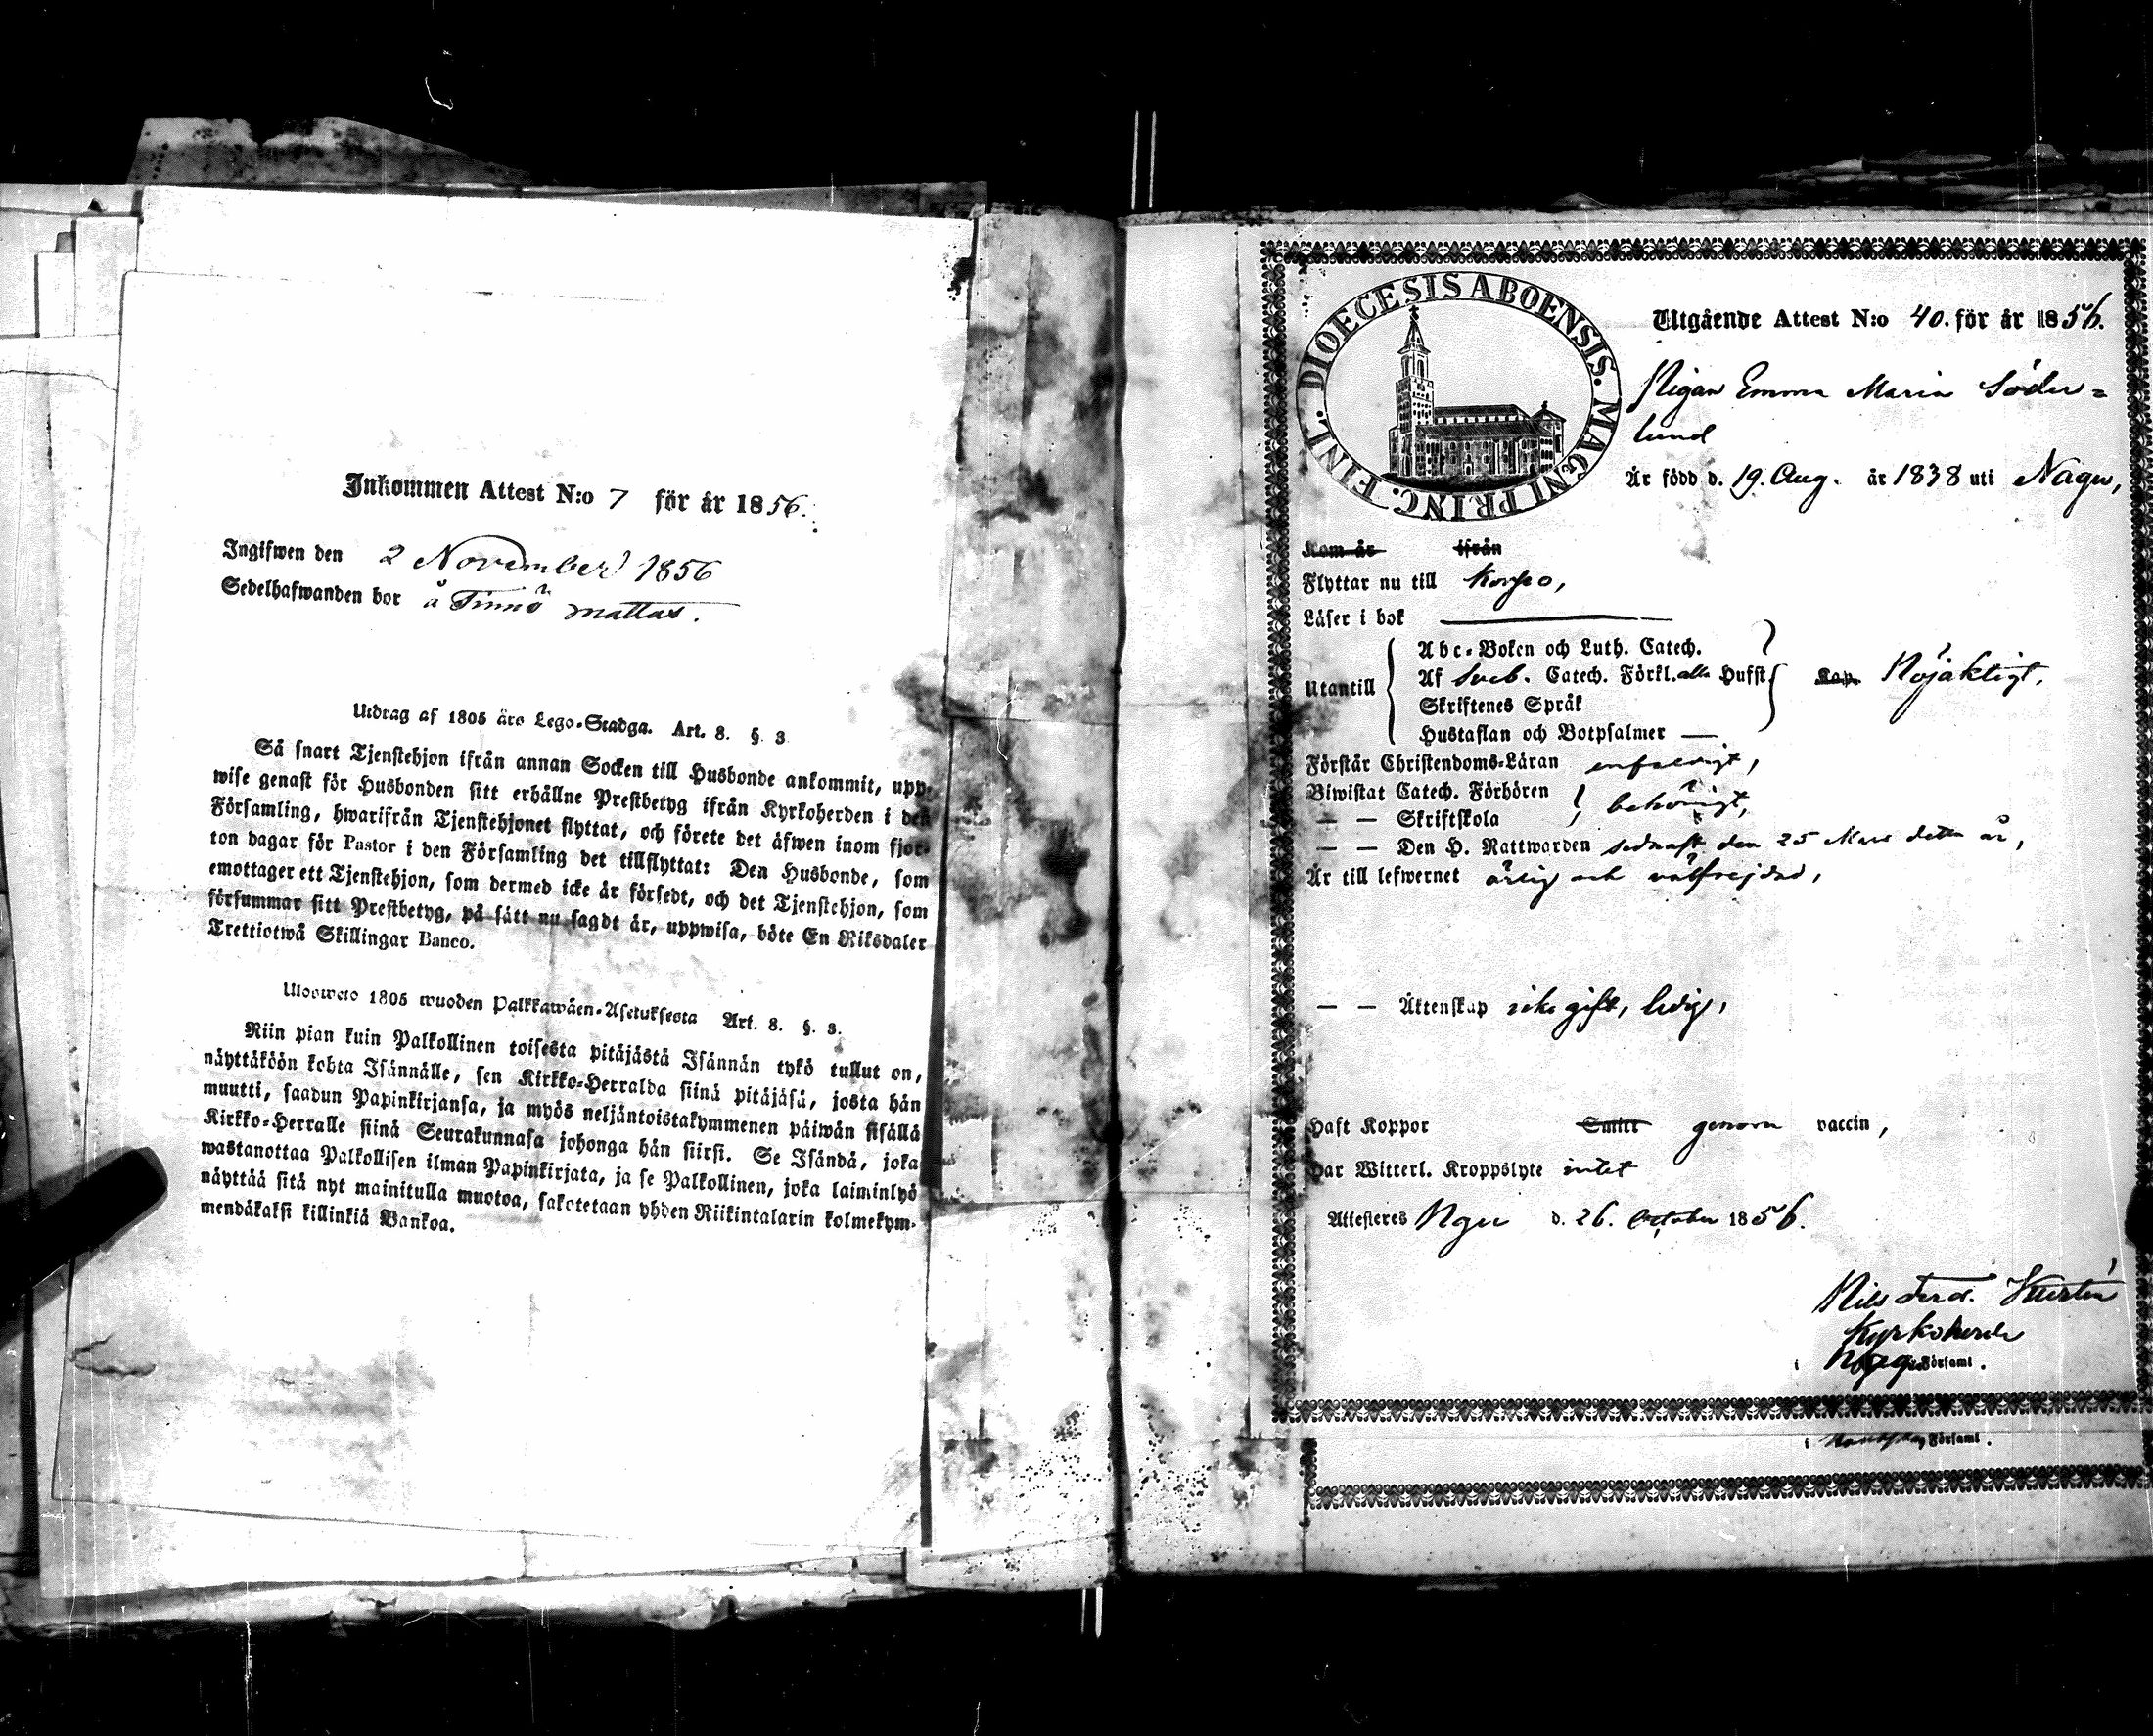 Inkommen Attest N:o 7 för år 1856.
Ingifwen den 2 November 1856
Sedelhafwanden bor å Finnö Mattas.
Utdrag af 1805 års Lego-Stadga. Art. 8. §. 3
Så snart Tjenstehjon ifrån annan Socken till Husbonde ankommit, upp-
wise genast för Husbonden sitt erhållne Prestbetyg ifrån Kyrkoherden i den
Församling, hwarifrån Tjenstehjonet flyttat, och förete det äfwen inom fjor-
ton dagar för Pastor i den Församling det tillflyttat: Den Husbonde, som
emottager ett Tjenstehjon, som dermed icke är försedt, och det Tjenstehjon, som
försummar sitt Prestbetyg, på sätt nu sagdt är, uppwisa, böte En Riksdaler
Trettiotwå Skillingar Banco.
Ulosweto 1805 wuoden Palkkawäen-Asetuksesta Art. 8. §. 3.
Niin pian kuin Palkollinen toisesta pitäjästä Isännän tykö tullut on,
näyttäköön kohta Isännälle, sen Kirkko-Herralda siinä pitäjäsä, josta hän
muutti, saadun Papinkirjansa, ja myös neljäntoistakymmenen päiwän sisällä
Kirkko-Herralle siinä Seurakunnasa johonga hän siirsi. Se Isändä, joka
wastanottaa Palkollisen ilman Papinkirjata, ja se Palkollinen, joka laiminlyö
näyttää sitä nyt mainitulla muotoa, sakotetaan yhden Riikintalarin kolmekym-
mendäkaksi killinkiä Bankoa.
FINL. DIOECESIS ABOENSIS. MAGNI PRINC.
Utgående Attest N:o 40. för år 1856.
Pigan Emma Maria Söder=
lund
Är född d. 19. Aug. år 1838 uti Nagu,
Kom år ifrån
Flyttar nu till Korpo,
Läser i bok
Utantill
Abc-Boken och Luth. Catech.
Af Sveb. Catech. Förkl. alla Hufst
Skriftenes Språk
Hustaflan och Botpsalmer —
Kap. Nöjaktigt.
Förstår Christendoms-Läran enfaldigt,
Biwistat Catech. Förhören
— — Skriftskola
behörigt,
— — Den H. Nattwarden sednast den 25 Mars detta år,
Är till lefwernet ärlig och välfrejdad,
— — Äktenskap icke gift, ledig,
Haft Koppor Smitt genom vaccin,
Har Witterl. Kroppslyte intet
Attesteres Nagu d. 26. October 1856.
Nils Ferd.
Kyrkoherde
i Nagu Församl.
i Församl.